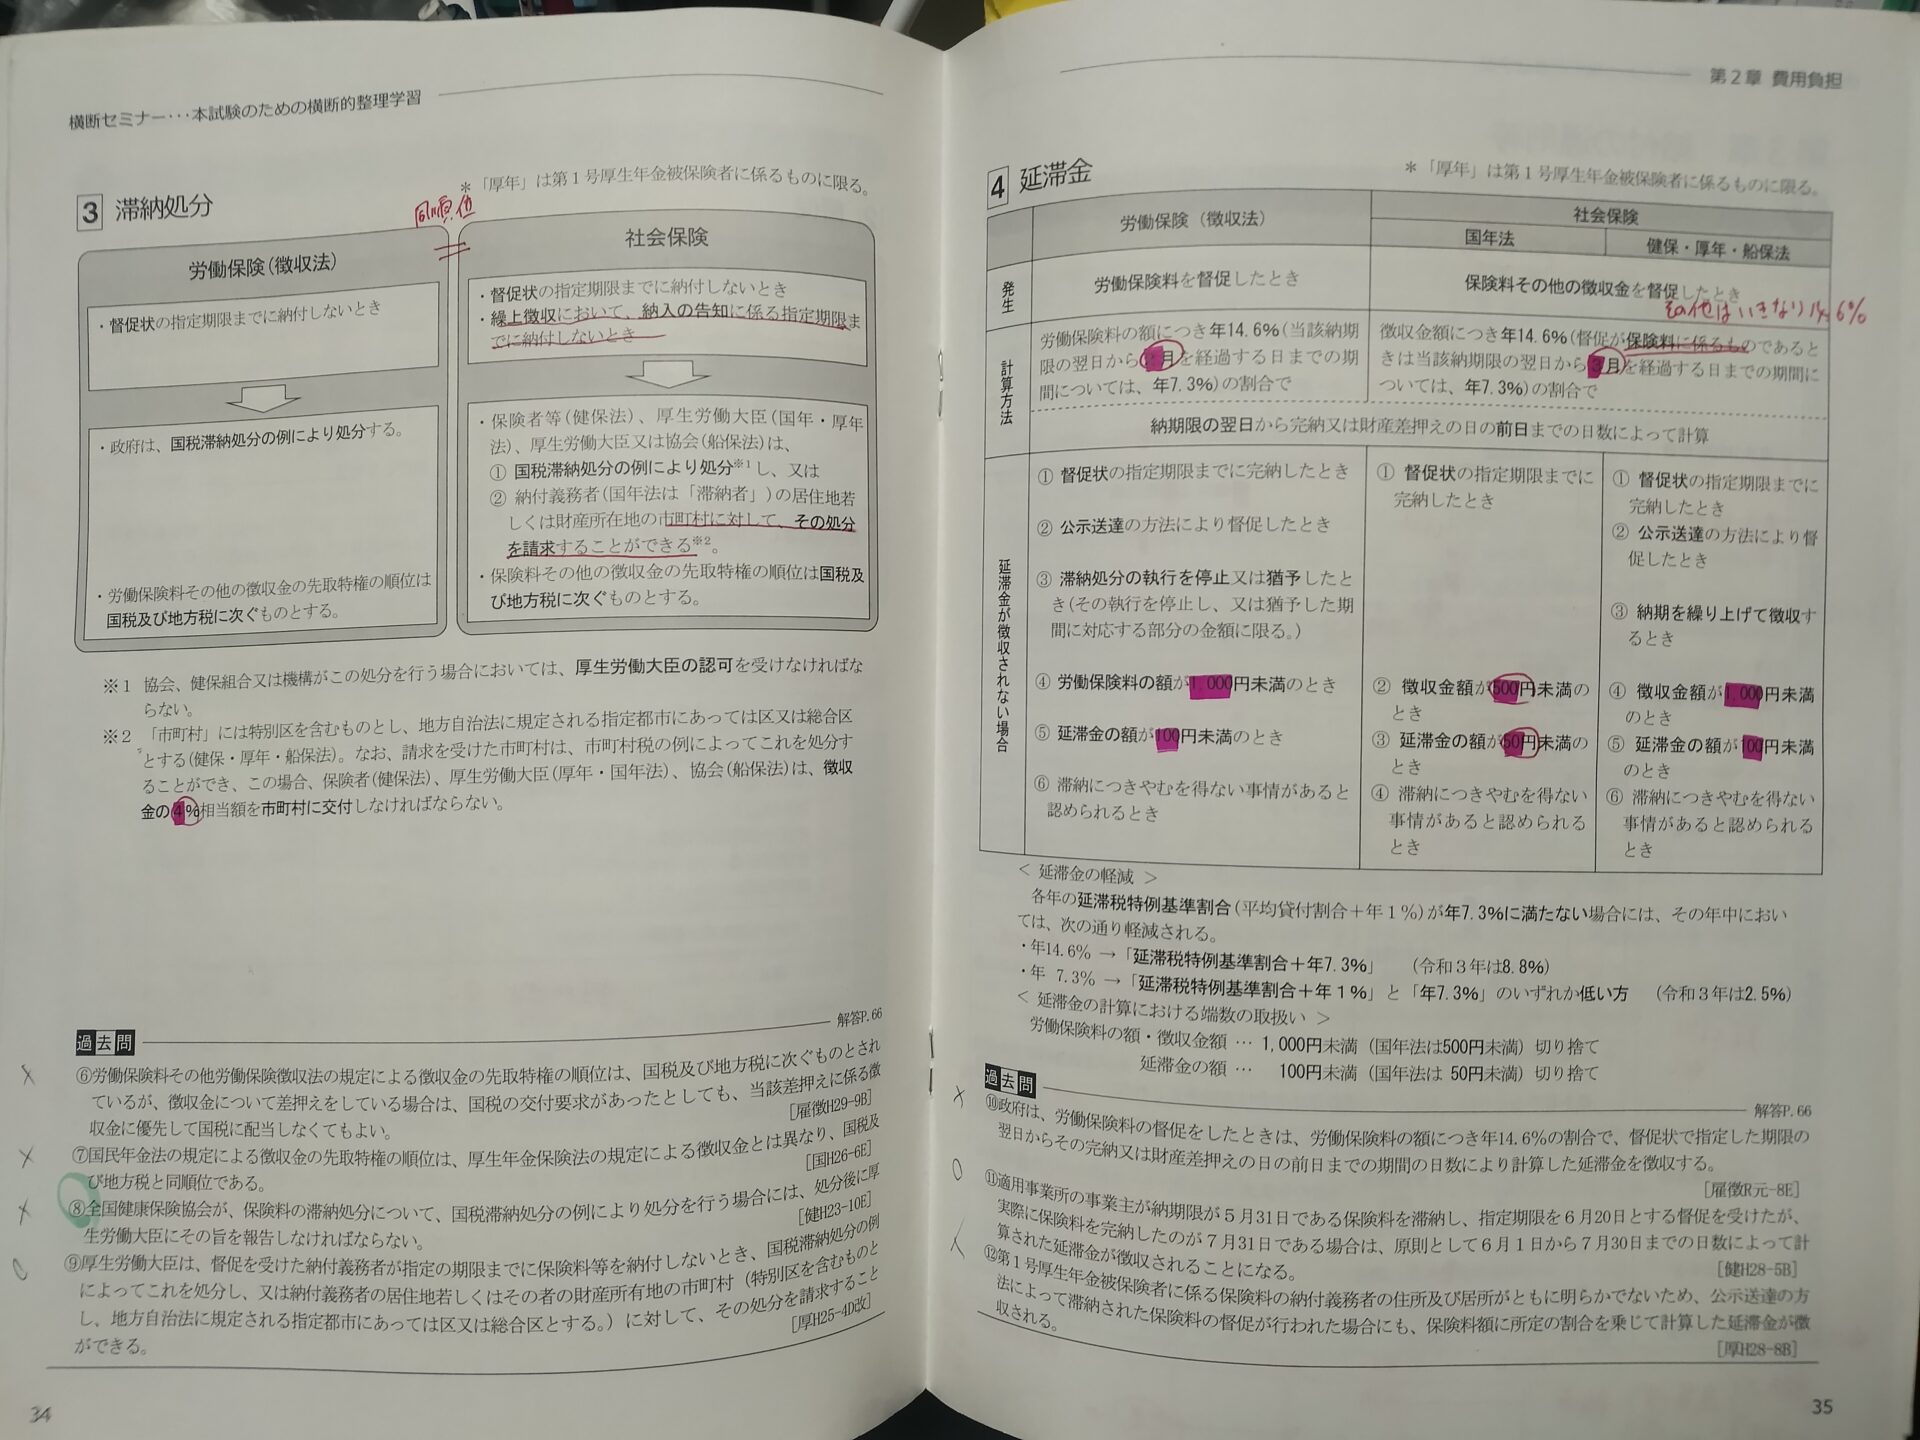 横断セミナー･･･本試験のための横断的整理学習
＊「厚年」は第１号厚生年金被保険者に係るものに限る。
3 滞納処分
同順位
労働保険(徴収法)
・督促状の指定期限までに納付しないとき
・政府は、国税滞納処分の例により処分する。
・労働保険料その他の徴収金の先取特権の順位は
国税及び地方税に次ぐものとする。
社会保険
・督促状の指定期限までに納付しないとき
・繰上徴収において、納入の告知に係る指定期限ま
でに納付しないとき
・保険者等(健保法)、厚生労働大臣(国年・厚年
法)、厚生労働大臣又は協会(船保法)は、
① 国税滞納処分の例により処分※1し、又は
② 納付義務者(国年法は「滞納者」)の居住地若
しくは財産所在地の市町村に対して、その処分
を請求することができる※2。
・保険料その他の徴収金の先取特権の順位は国税及
び地方税に次ぐものとする。
※１ 協会、健保組合又は機構がこの処分を行う場合においては、厚生労働大臣の認可を受けなければな
らない。
※２ 「市町村」には特別区を含むものとし、地方自治法に規定される指定都市にあっては区又は総合区
とする(健保・厚年・船保法)。なお、請求を受けた市町村は、市町村税の例によってこれを処分す
ることができ、この場合、保険者(健保法)、厚生労働大臣(厚年・国年法)、協会(船保法)は、徴収
金の4％相当額を市町村に交付しなければならない。
過去問
解答P.66
⑥労働保険料その他労働保険徴収法の規定による徴収金の先取特権の順位は、国税及び地方税に次ぐものとされ
ているが、徴収金について差押えをしている場合は、国税の交付要求があったとしても、当該差押えに係る徴
収金に優先して国税に配当しなくてもよい。
[雇徴H29-9B]
⑦国民年金法の規定による徴収金の先取特権の順位は、厚生年金保険法の規定による徴収金とは異なり、国税及
び地方税と同順位である。
[国H26-6E]
⑧全国健康保険協会が、保険料の滞納処分について、国税滞納処分の例により処分を行う場合には、処分後に厚
生労働大臣にその旨を報告しなければならない。
[健H23-10E]
⑨厚生労働大臣は、督促を受けた納付義務者が指定の期限までに保険料等を納付しないとき、国税滞納処分の例
によってこれを処分し、又は納付義務者の居住地若しくはその者の財産所有地の市町村（特別区を含むものと
し、地方自治法に規定される指定都市にあっては区又は総合区とする。）に対して、その処分を請求すること
ができる。
[厚H25-4D改]
34
第２章 費用負担
4 延滞金
＊「厚年」は第１号厚生年金被保険者に係るものに限る。
労働保険（徴収法）
社会保険
国年法
健保・厚年・船保法
発生
労働保険料を督促したとき
保険料その他の徴収金を督促したとき
その他はいきなり14.6％
計算方法
労働保険料の額につき年14.6％(当該納期
限の翌日から2月を経過する日までの期
間については、年7.3％)の割合で
徴収金額につき年14.6％(督促が保険料に係るものであると
きは当該納期限の翌日から3月を経過する日までの期間に
ついては、年7.3％)の割合で
納期限の翌日から完納又は財産差押えの日の前日までの日数によって計算
延滞金が徴収されない場合
① 督促状の指定期限までに完納したとき
② 公示送達の方法により督促したとき
③ 滞納処分の執行を停止又は猶予したと
き(その執行を停止し、又は猶予した期
間に対応する部分の金額に限る。)
④ 労働保険料の額が1,000円未満のとき
⑤ 延滞金の額が100円未満のとき
⑥ 滞納につきやむを得ない事情があると
認められるとき
① 督促状の指定期限までに
完納したとき
② 徴収金額が500円未満の
とき
③ 延滞金の額が50円未満の
とき
④ 滞納につきやむを得ない
事情があると認められる
とき
① 督促状の指定期限までに
完納したとき
② 公示送達の方法により督
促したとき
③ 納期を繰り上げて徴収す
るとき
④ 徴収金額が1,000円未満
のとき
⑤ 延滞金の額が100円未満
のとき
⑥ 滞納につきやむを得ない
事情があると認められる
とき
＜ 延滞金の軽減 ＞
各年の延滞税特例基準割合(平均貸付割合＋年１％)が年7.3％に満たない場合には、その年中におい
ては、次の通り軽減される。
・年14.6％ →「延滞税特例基準割合＋年7.3％」 （令和３年は8.8％）
・年 7.3％ →「延滞税特例基準割合＋年１％」と「年7.3％」のいずれか低い方 （令和３年は2.5％）
＜ 延滞金の計算における端数の取扱い ＞
労働保険料の額・徴収金額 … 1,000円未満（国年法は500円未満）切り捨て
延滞金の額 … 100円未満（国年法は 50円未満）切り捨て
過去問
解答P.66
⑩政府は、労働保険料の督促をしたときは、労働保険料の額につき年14.6％の割合で、督促状で指定した期限の
翌日からその完納又は財産差押えの日の前日までの期間の日数により計算した延滞金を徴収する。
[雇徴R元-8E]
⑪適用事業所の事業主が納期限が５月31日である保険料を滞納し、指定期限を６月20日とする督促を受けたが、
実際に保険料を完納したのが７月31日である場合は、原則として６月１日から７月30日までの日数によって計
算された延滞金が徴収されることになる。
[健H28-5B]
⑫第１号厚生年金被保険者に係る保険料の納付義務者の住所及び居所がともに明らかでないため、公示送達の方
法によって滞納された保険料の督促が行われた場合にも、保険料額に所定の割合を乗じて計算した延滞金が徴
収される。
[厚H28-8B]
35